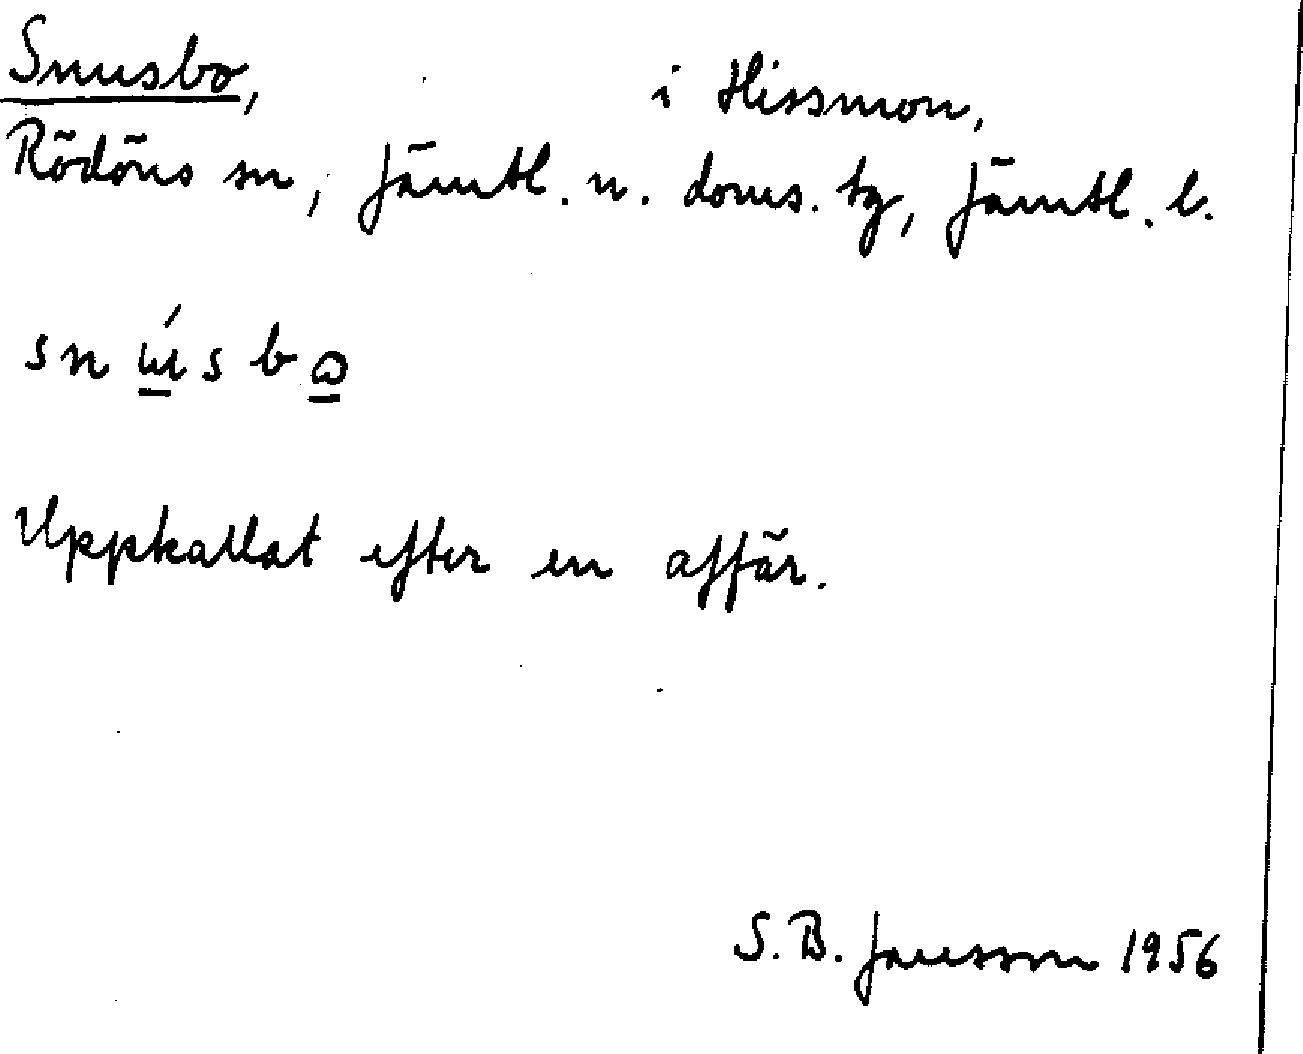 Snusbo, i Hissmon,
Rödöns sn, Jämtl. n. doms. tg, Jämtl. l.
snɯ́sbɷ
Uppkallat efter en affär.
S. B. Jansson 1956